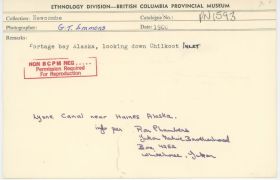 ETHNOLOGY DIVISION—BRITISH COLUMBIA PROVINCIAL MUSEUM
Collection: Newcombe Catalogue No.: PN1593
Photographer: G.T. Emmons Date:
Remarks:
Portage bay Alaska, looking down Chilkoot INLET
NON BCPM NEG.
Permission Required
For Reproduction
Lynn Canal near Haines Alaska.
info per Ray Chambers
Yukon Native Brotherhood
Box
Whitehorse, Yukon